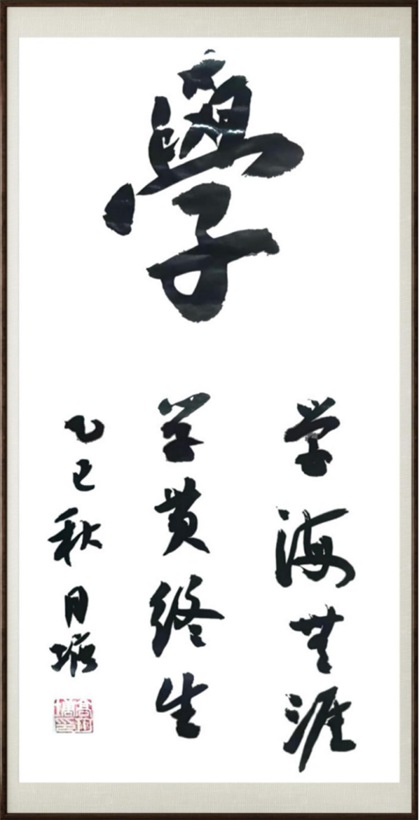 學
学海無涯
学贵终生
乙巳秋月